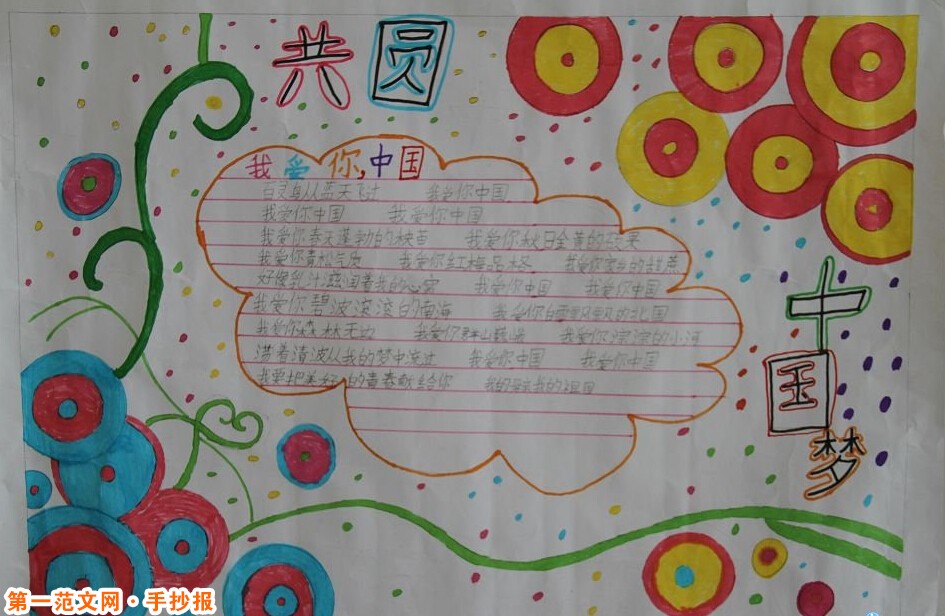 共圆
我爱你,中国
百灵鸟从蓝天飞过 我爱你中国
我爱你中国 我爱你中国
我爱你春天蓬勃的秧苗 我爱你秋日金黄的硕果
我爱你青松气质 我爱你红梅品格 我爱你家乡的甜蔗
好像乳汁滋润着我的心窝 我爱你中国 我爱你中国
我爱你碧波滚滚的南海 我爱你白雪飘飘的北国
我爱你森林无边 我爱你群山巍峨 我爱你淙淙的小河
荡着清波从我的梦中流过 我爱你中国 我爱你中国
我要把美好的青春献给你 我的母亲我的祖国
中
国
梦
第一范文网·手抄报